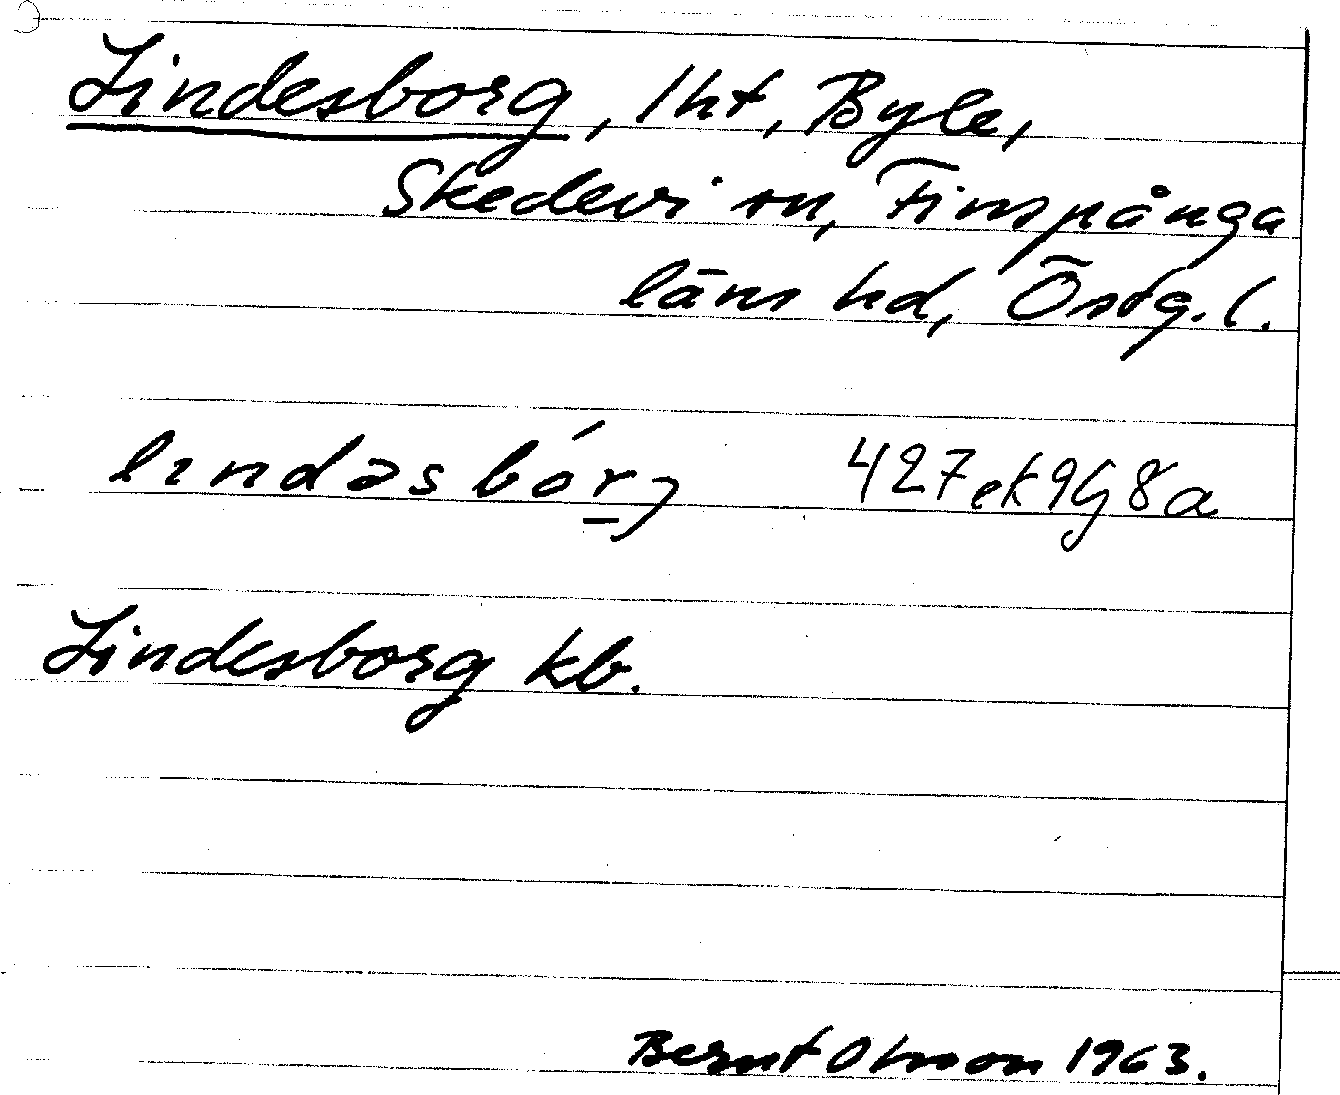 Lindesborg, lht, Byle,
Skedevi sn, Finspånga
läns hd, Östg. l.
lındəsbórj 427 ek 9G 8a
Lindesborg kb.
Bernt Olsson 1963.